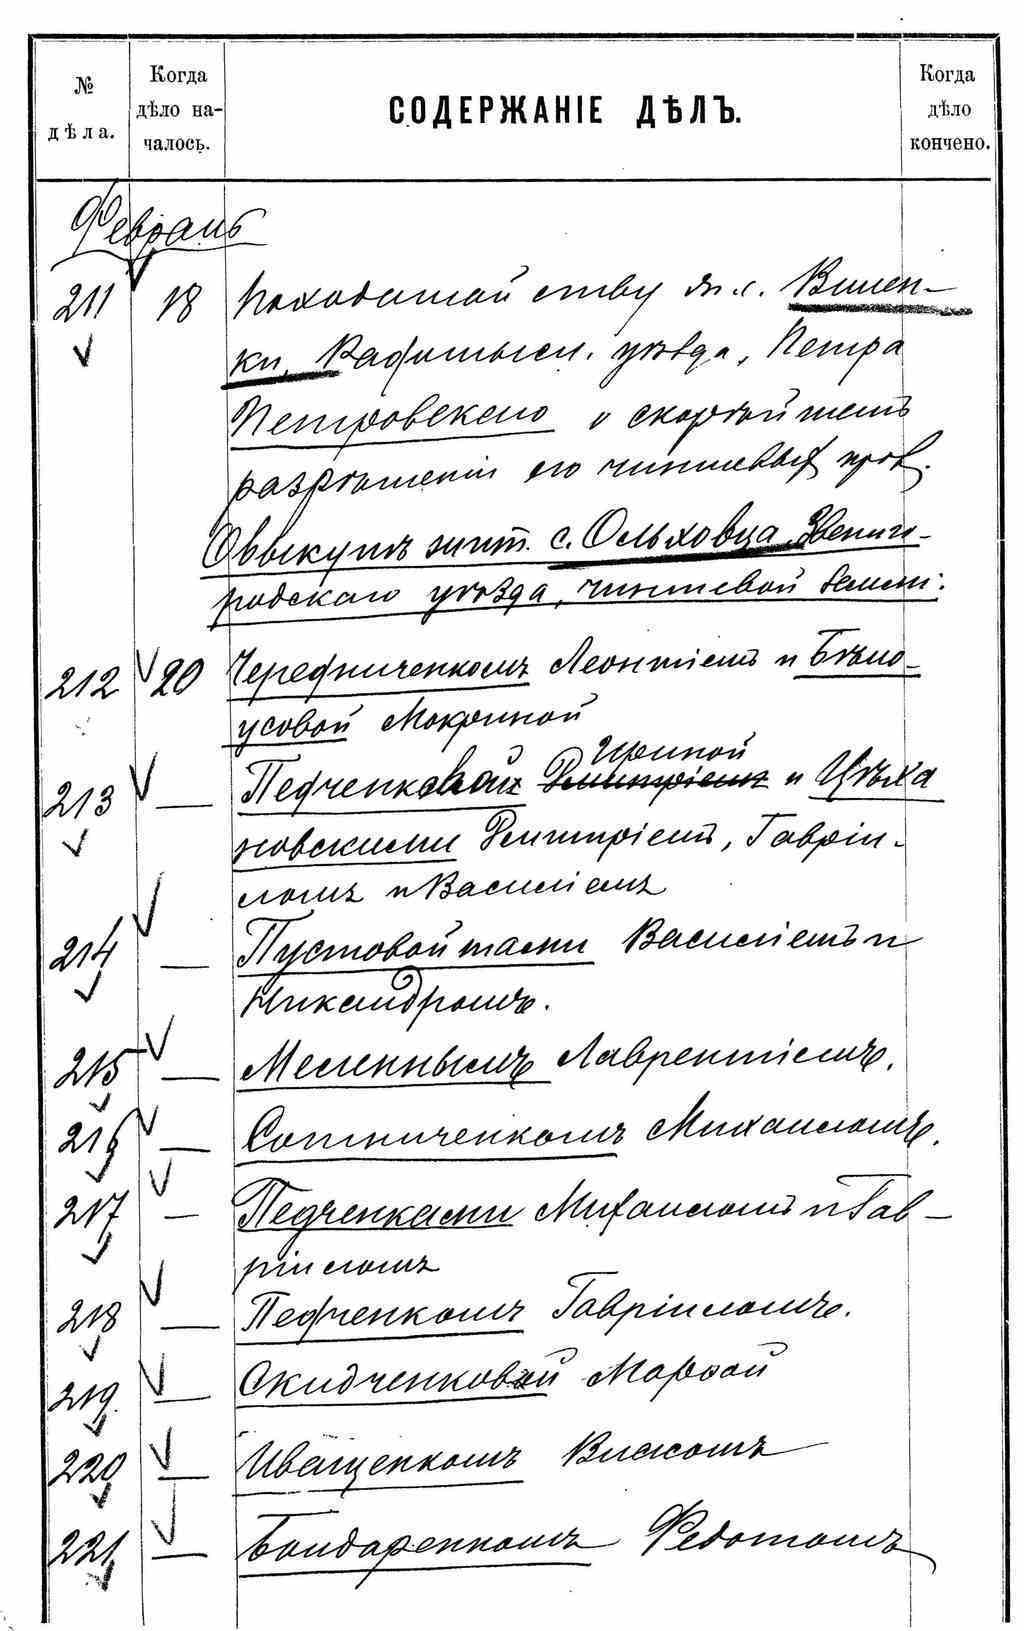 № дѣла.
Когда дѣло на-чалось.
СОДЕРЖАНІЕ ДѢЛЪ.
Когда дѣло кончено.
Февраль
211 18 По ходатайству жит. с. Вилен-
ки, Радомысл. уѣзда, Петра
Петровскаго о скорѣйшемъ
разрѣшеніи его чиншевыхъ прав.
О выкупѣ жит. с. Ольховца, Звениго-
родскаго уѣзда, чиншевой земли:
212 20 Чередниченкомъ Леонтіемъ и Бѣло-
усовой Мокриной
213 — Педченковой Ириной Дмитріемъ и Цѣха
новскими Дмитріемъ, Гавріи-
ломъ и Василіемъ
214 — Пустовойтами Василіемъ и
Никандромъ.
215 — Меленнымъ Лаврентіемъ.
216 — Сотниченкомъ Михаиломъ.
217 — Педченками Михаиломъ и Гав-
ріиломъ
218 — Педченкомъ Гавріиломъ.
219. — Скидченковой Марѳой
220 — Иващенкомъ Власомъ
221 — Бондаренкомъ Федотомъ